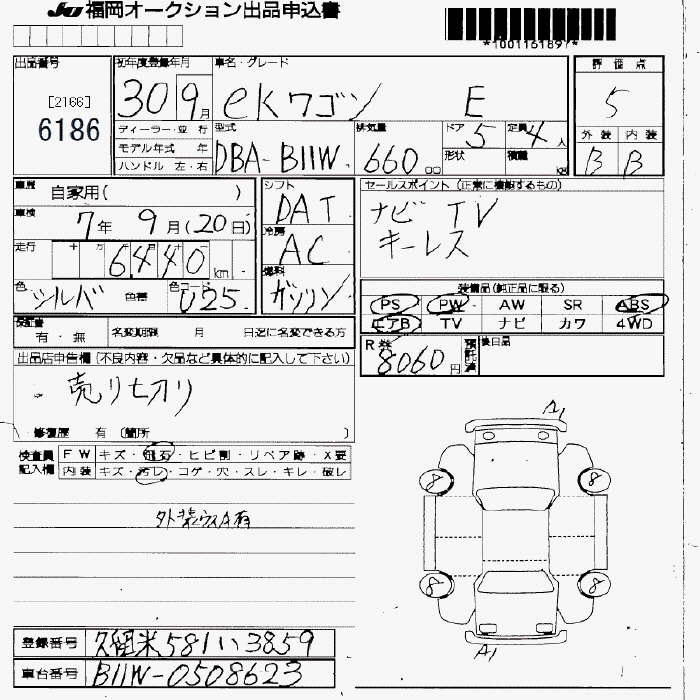 JU福岡オークション出品申込書
*1001161897*
出品番号
[2166]
6186
初年度登録年月
30 9月
車名・グレード
eKワゴン E
評価点
5
外装 内装
B B
ディーラー・並行
モデル年式 年
ハンドル 左・右
型式
DBA-B11W
排気量
660 cc
ドア 5
形状
定員 4人
積載 kg
車歴
自家用( )
車検
7年 9月(20日)
走行
十 万 千
6,440 km
色
シルバ 色替
色コード
U25
シフト
DAT
冷房
AC
燃料
ガソリン
セールスポイント (正常に機能するもの)
ナビ TV
キーレス
装備品(純正品に限る)
PS PW AW SR ABS
エアB TV ナビ カワ 4WD
R券 8060円
預託済
後日品
保証書
有・無
名変期限 月 日迄に名変できる方
出品店申告欄(不良内容・欠品など具体的に記入して下さい)
売リセオリ
修復歴 有 (箇所 )
検査員
記入欄
FW キズ・飛石・ヒビ割・リペア跡・X要
内装 キズ・汚レ・コゲ・穴・スレ・キレ・破レ
外装ウスA有
A1
8 8
8 8
A1
登録番号 久留米581い3859
車台番号 B11W-0508623